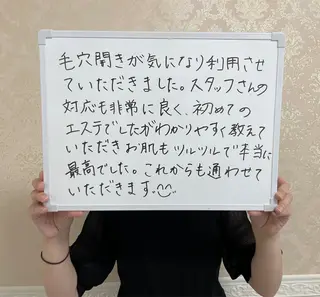 毛穴開きが気になり利用させ
ていただきました。スタッフさんの
対応も非常に良く、初めての
エステでしたがわかりやすく教えて
いただきお肌もツルツルで本当に
最高でした。これからも通わせて
いただきます。